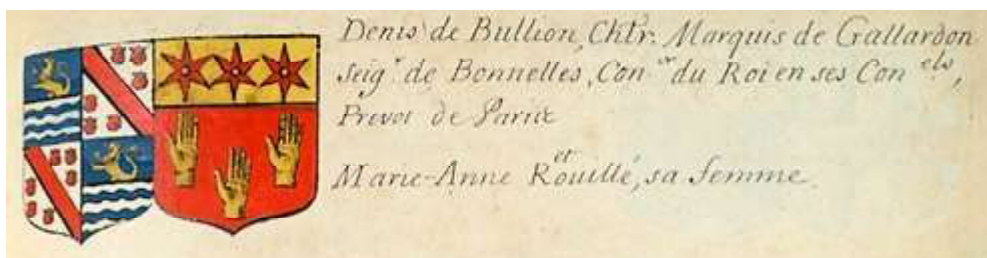 Denis de Bullion, Chlr. Marquis de Gallardon
Seigr. de Bonnelles, Coner du Roi en ses Conels,
Prevot de Paris
et
Marie-Anne Rouillé, sa femme.